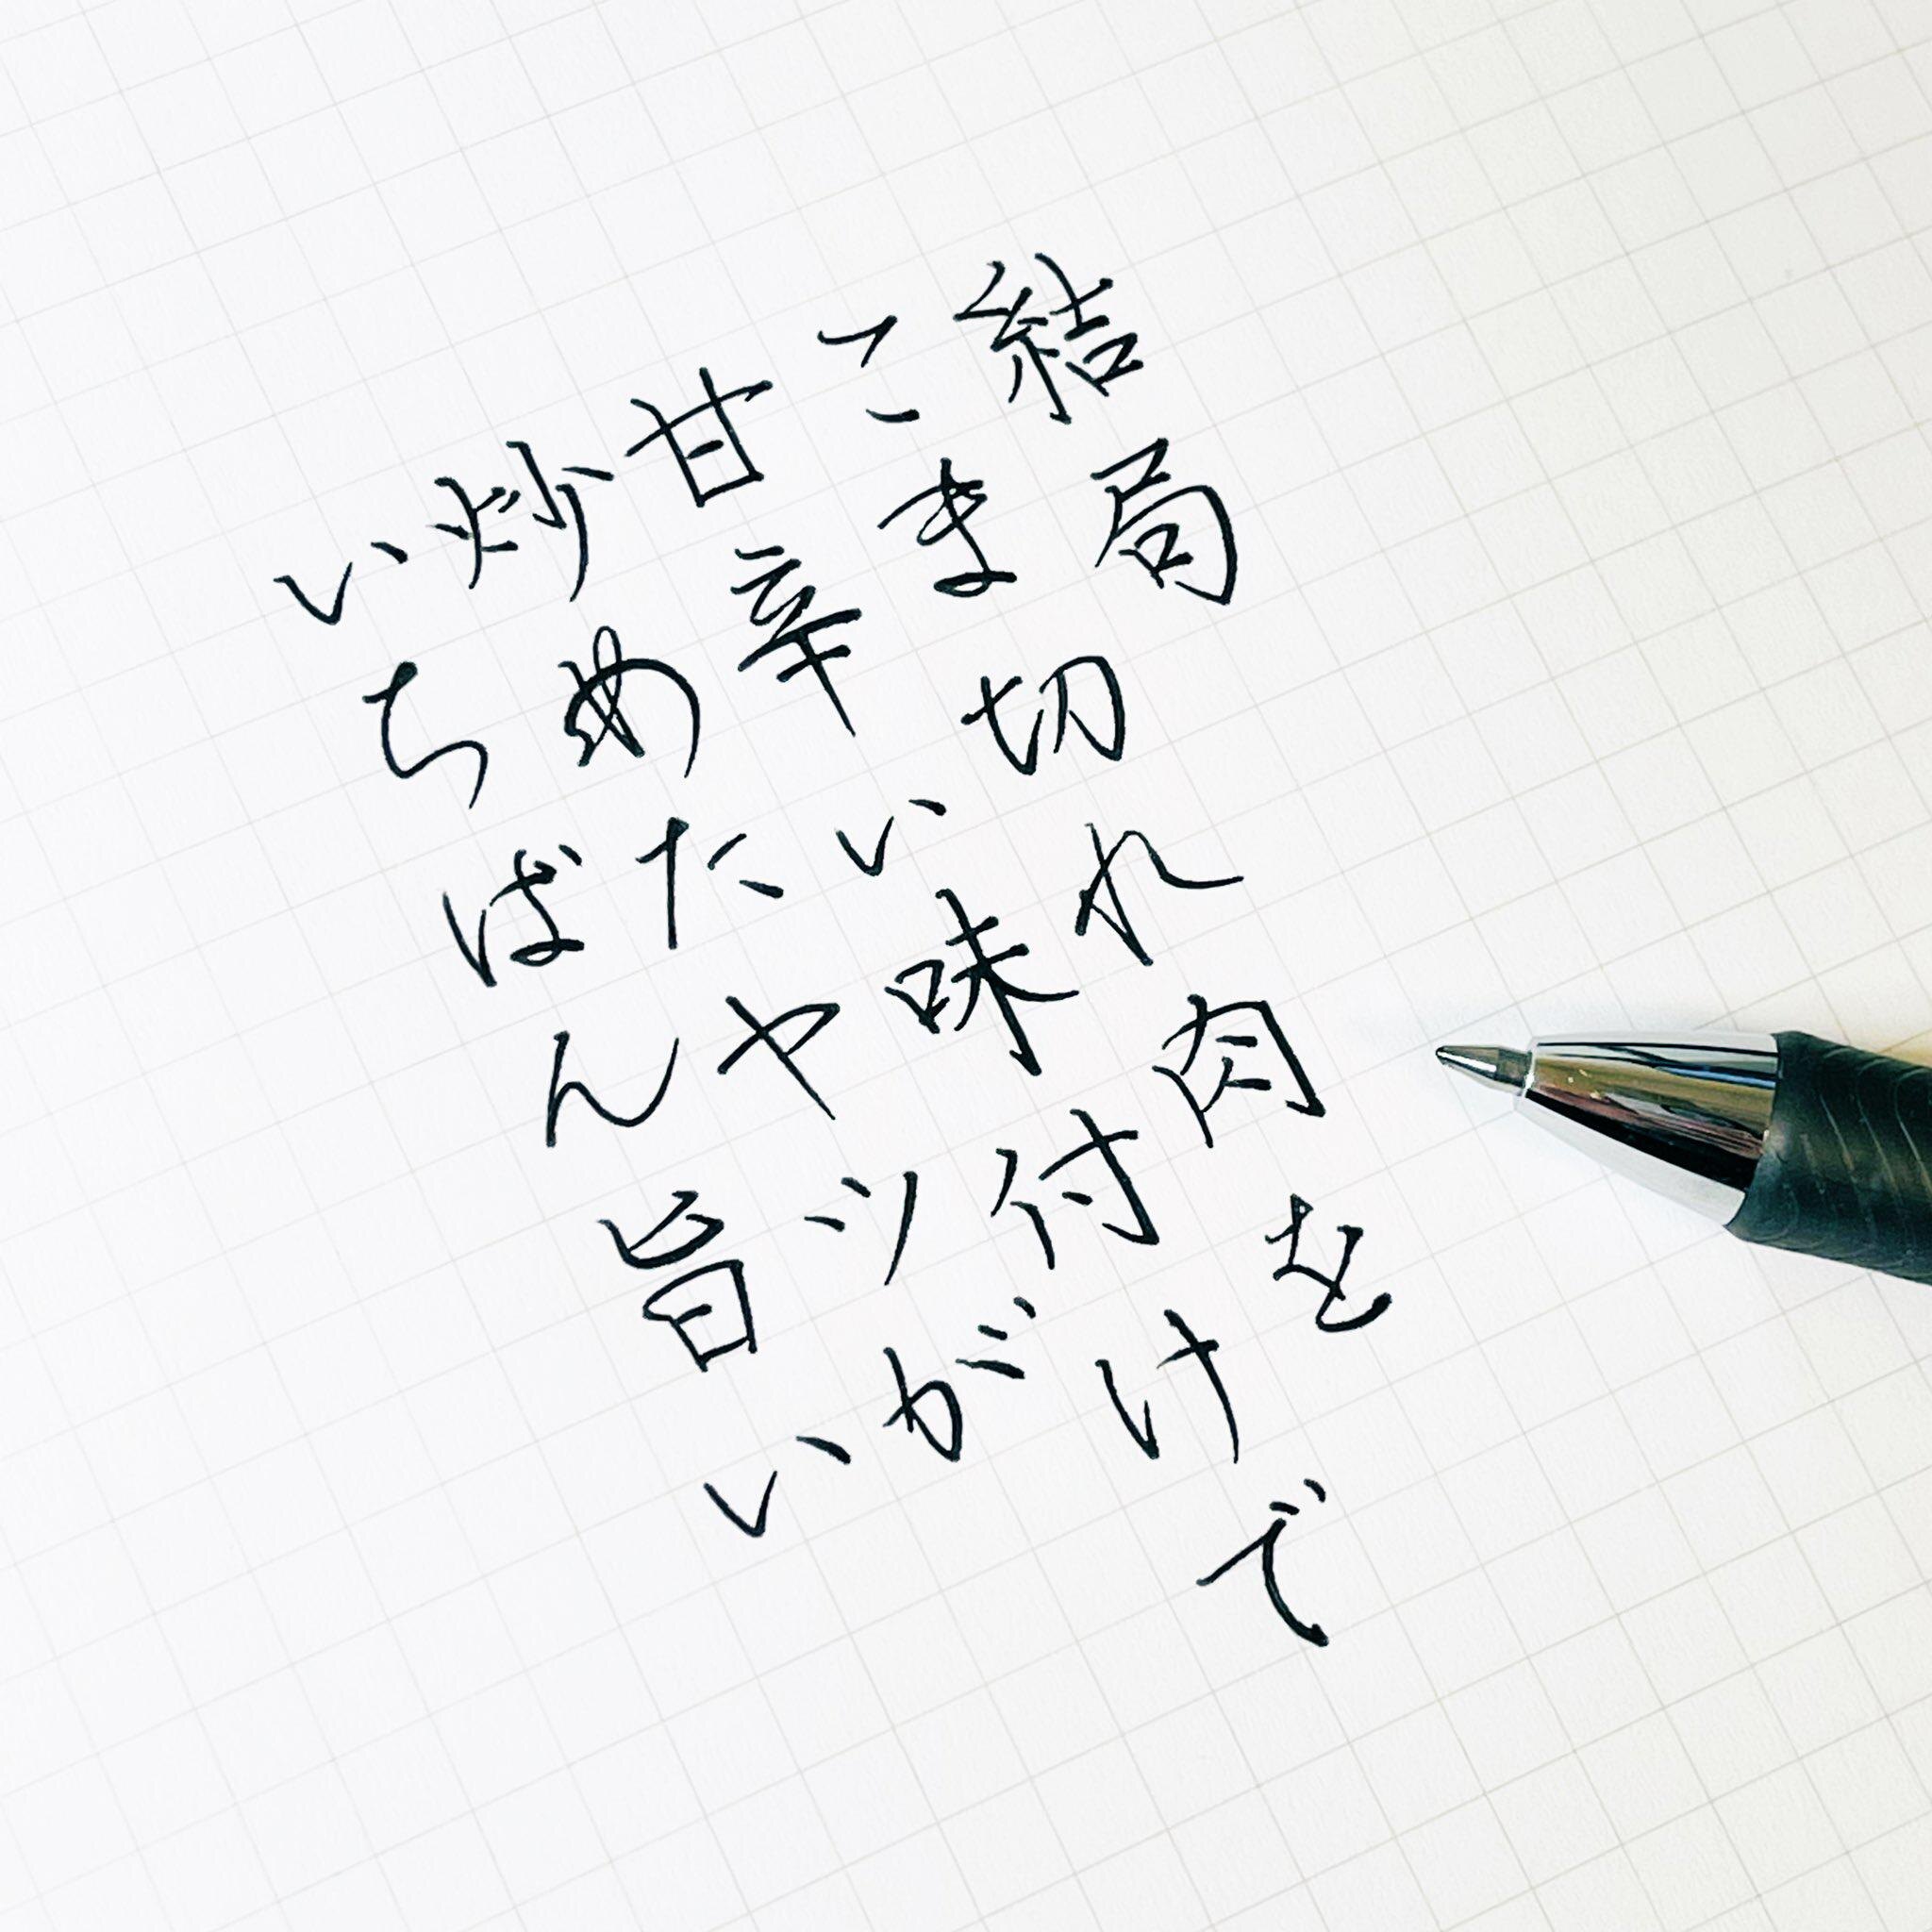 結局
こま切れ肉を
甘辛い味付けで
炒めたヤツが
いちばん旨い